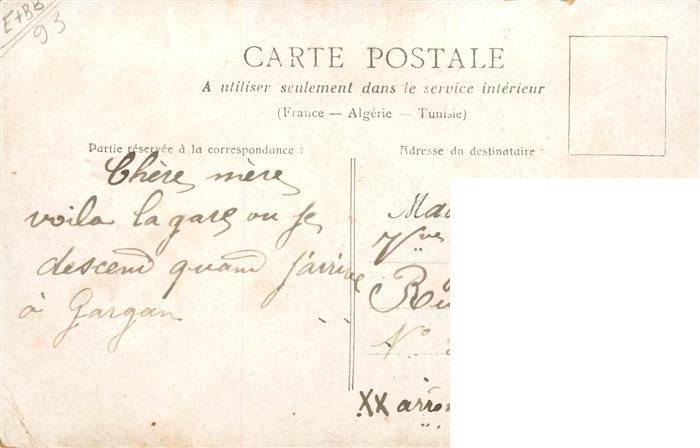 E+BB
93
CARTE POSTALE
A utiliser seulement dans le service intérieur
(France — Algérie — Tunisie)
Partie réservée à la correspondance :
Adresse du destinataire :
Chère mère
voila la gare ou je
descend quand j'arrive
à Gargan
Mad
Vve
Ru
N°
XX arron